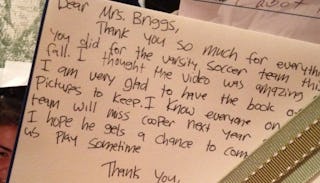 Dear Mrs. Briggs,
Thank you so much for everything
you did for the varsity soccer team this
fall. I thought the video was amazing
I am very glad to have the book of
Pictures to keep. I know everyone on
team will miss cooper next year
I hope he gets a chance to com
us play sometime
Thank you,